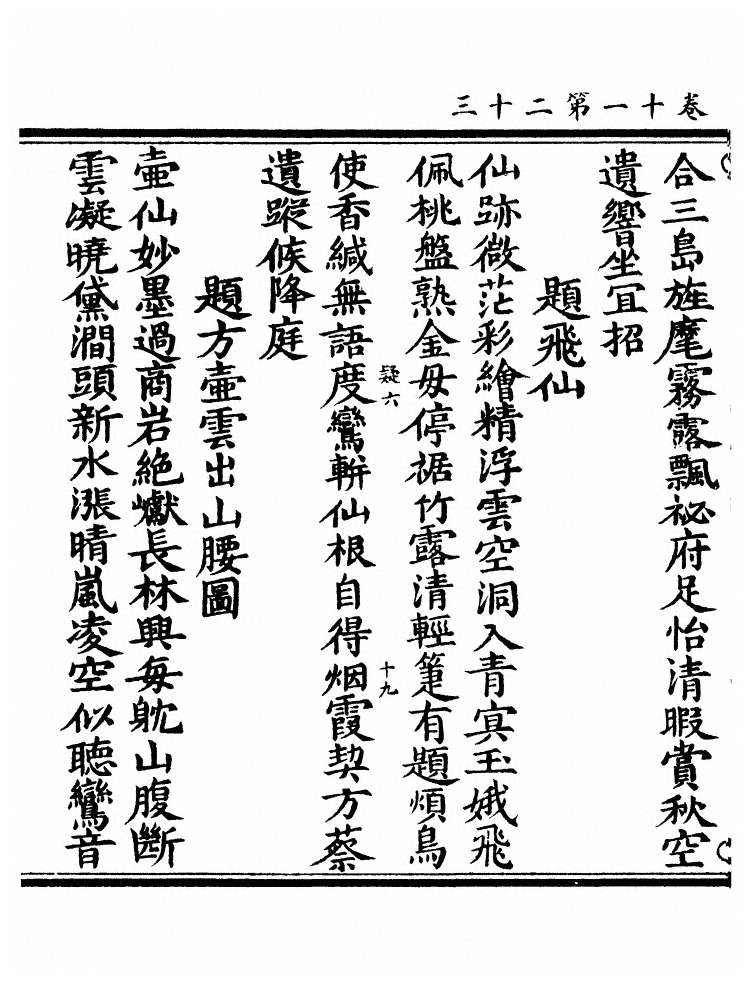 三十二第一十卷
合三島旌麾霧露飄祕府足怡清暇賞秋空
遺響坐冝招
題飛仙
仙跡微茫彩繪精浮雲空洞入青㝠玉娥飛
佩桃盤熟金毋停裾竹露清輕箑有題煩鳥
使香緘無語度鸞軿仙根自得烟霞契方蔡
疑六
十九
遺蹤候降庭
題方壷雲出山腰圖
壷仙妙墨過商岩絶巘長林興每躭山腹斷
雲凝曉黛澗頭新水漲晴嵐凌空似聽鸞音